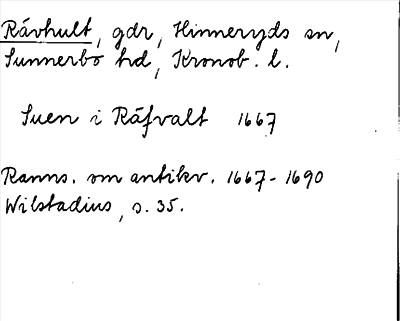 Råvhult, gdr, Hinneryds sn,
Sunnerbo hd, Kronob. l.
Suen i Råfvalt 1667
Ranns. om antikv. 1667-1690
Wilstadius, s. 35.